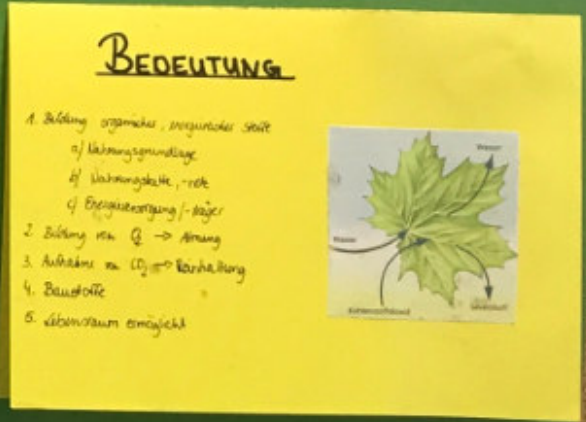 BEDEUTUNG
1. Bildung organischer, energetischer Stoffe
a) Nahrungsgrundlage
b) Nahrungskette, -netz
c) Energieversorgung/-träger
2. Bildung von O₂ -> Atmung
3. Aufnahme von CO₂ -> Reinhaltung
4. Baustoffe
5. Lebensraum ermöglicht
Wasser
Wasser
Kohlenstoffdioxid
Sauerstoff